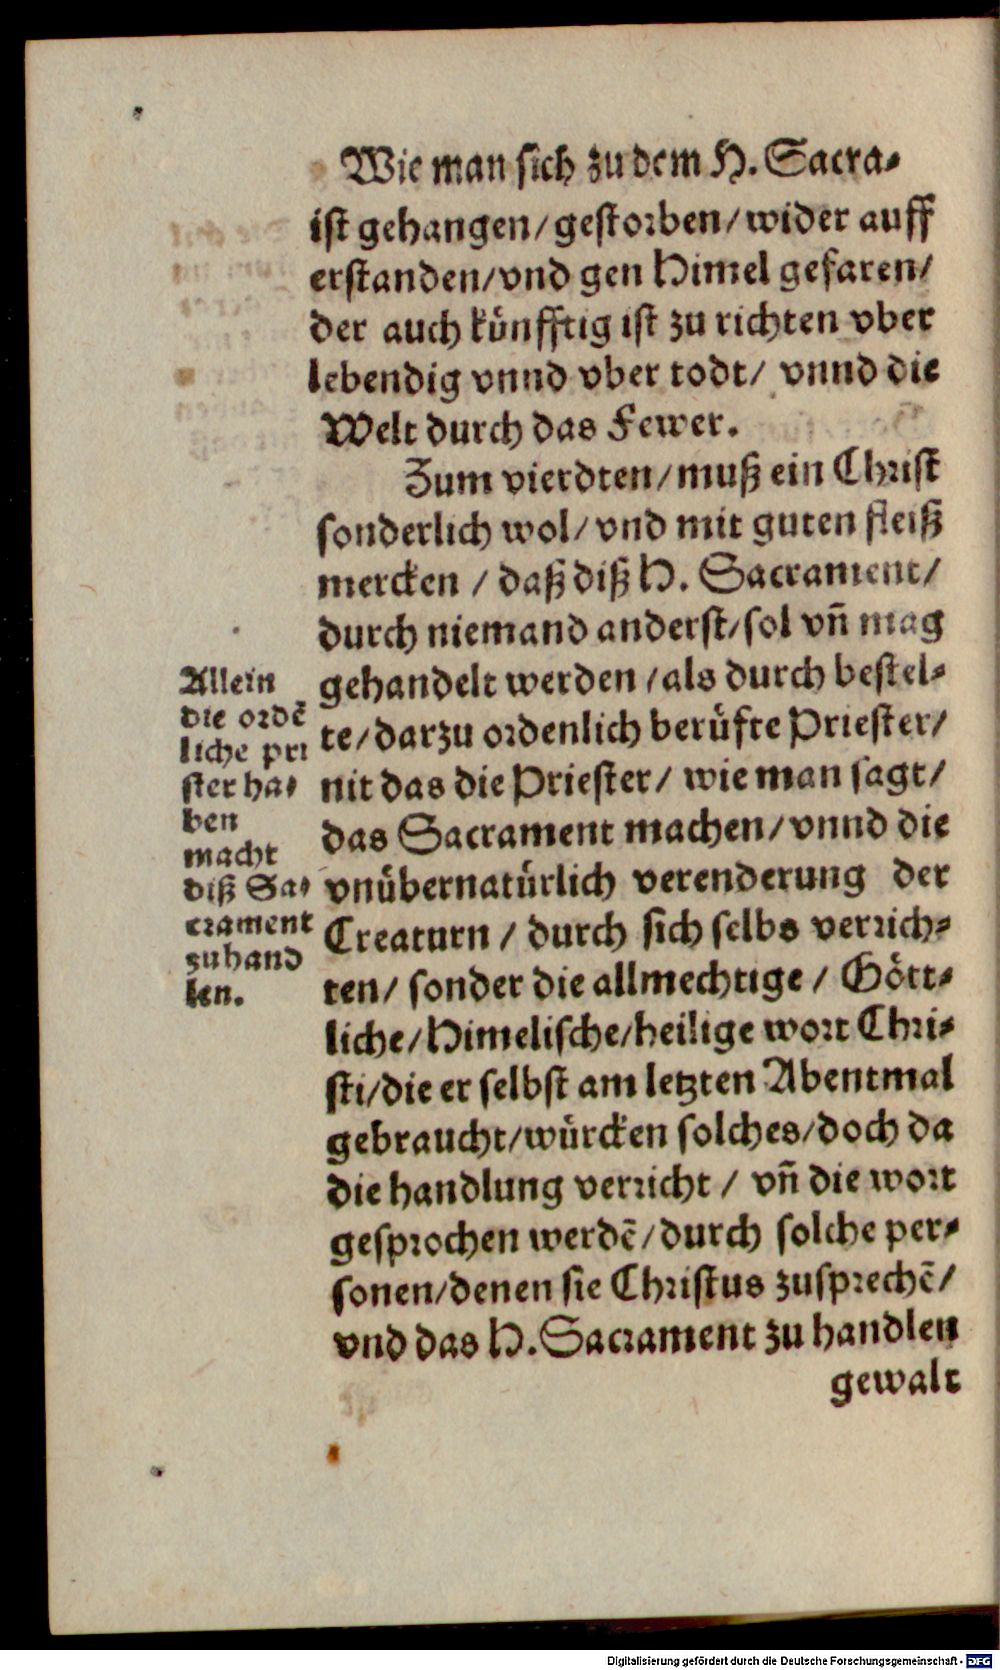 Wie man sich zu dem H. Sacra-
ist gehangen/gestorben/wider auff
erstanden/vnd gen Himel gefaren/
der auch künfftig ist zu richten vber
lebendig vnnd vber todt/ vnnd die
Welt durch das Fewer.
Zum vierdten/muß ein Christ
sonderlich wol/vnd mit guten fleiß
mercken / daß diß H. Sacrament/
durch niemand anderst/sol vñ mag
gehandelt werden /als durch bestel-
te/darzu ordenlich berüfte Priester/
nit das die Priester/ wie man sagt/
das Sacrament machen/vnnd die
vnübernatürlich verenderung der
Creaturn / durch sich selbs verrich-
ten/ sonder die allmechtige / Gött-
liche/Himelische/heilige wort Chri-
sti/die er selbst am letzten Abentmal
gebraucht/würcken solches/doch da
die handlung verricht / vñ die wort
gesprochen werdẽ/durch solche per-
sonen/denen sie Christus zusprechẽ/
vnd das H.Sacrament zu handlen
gewalt
Allein
die ordẽ
liche pri
ster ha-
ben
macht
diß Sa-
crament
zuhand
len.
Digitalisierung gefördert durch die Deutsche Forschungsgemeinschaft - DFG